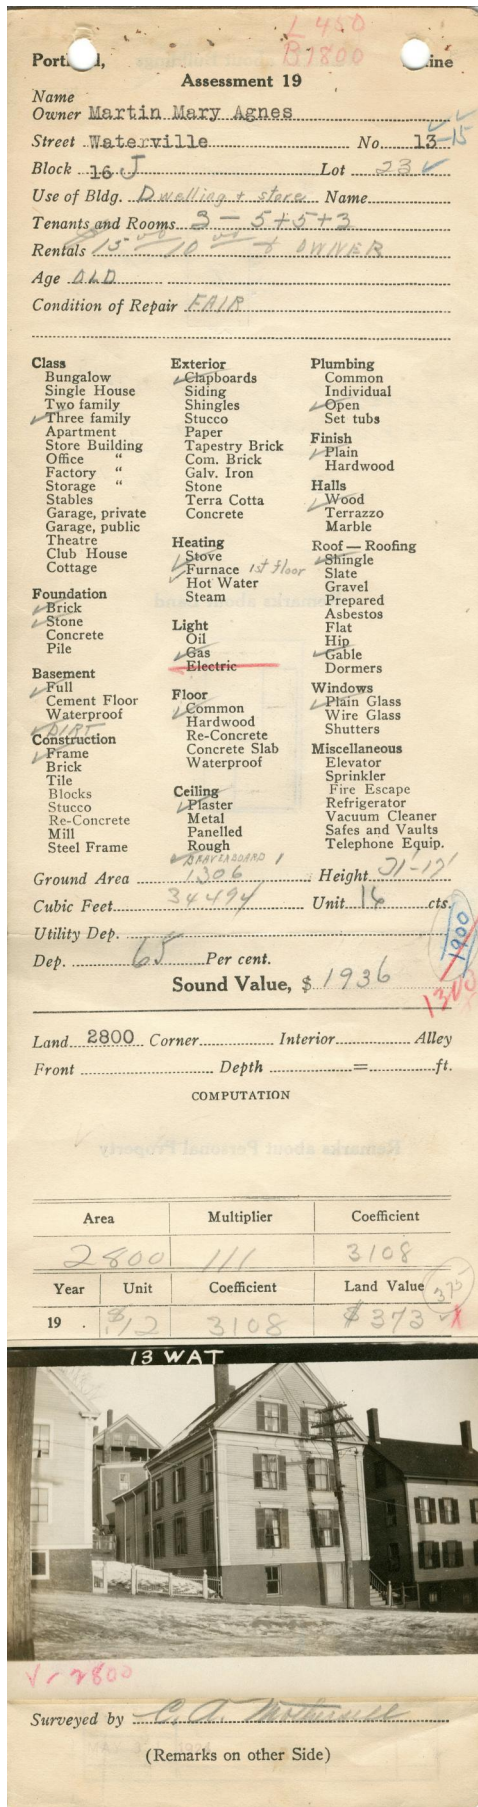 L 450
B 1800
Portland, Maine
Assessment 19
Name
Owner Martin Mary Agnes
Street Waterville No. 13-15
Block 16 J Lot 23
Use of Bldg. Dwelling + store Name
Tenants and Rooms 3 - 5+5+3
Rentals 15 00 10 00 + OWNER
Age OLD
Condition of Repair FAIR
Class
Bungalow
Single House
Two family
Three family
Apartment
Store Building
Office "
Factory "
Storage "
Stables
Garage, private
Garage, public
Theatre
Club House
Cottage
Foundation
Brick
Stone
Concrete
Pile
Basement
Full
Cement Floor
Waterproof
DIRT
Construction
Frame
Brick
Tile
Blocks
Stucco
Re-Concrete
Mill
Steel Frame
Exterior
Clapboards
Siding
Shingles
Stucco
Paper
Tapestry Brick
Com. Brick
Galv. Iron
Stone
Terra Cotta
Concrete
Heating
Stove
Furnace 1st floor
Hot Water
Steam
Light
Oil
Gas
Electric
Floor
Common
Hardwood
Re-Concrete
Concrete Slab
Waterproof
Ceiling
Plaster
Metal
Panelled
Rough
BEAVERBOARD 1
Plumbing
Common
Individual
Open
Set tubs
Finish
Plain
Hardwood
Halls
Wood
Terrazzo
Marble
Roof — Roofing
Shingle
Slate
Gravel
Prepared
Asbestos
Flat
Hip
Gable
Dormers
Windows
Plain Glass
Wire Glass
Shutters
Miscellaneous
Elevator
Sprinkler
Fire Escape
Refrigerator
Vacuum Cleaner
Safes and Vaults
Telephone Equip.
Ground Area 1306 Height 31'-17'
Cubic Feet 34494 Unit 16 cts.
Utility Dep.
1900
Dep. 65 Per cent.
Sound Value, $ 1936
1300
Land 2800 Corner Interior Alley
Front Depth = ft.
COMPUTATION
Area Multiplier Coefficient
2800 111 3108
Year Unit Coefficient Land Value
375
19 . $.12 3108 $373
13 WAT
V- 2800
Surveyed by C. A. Mothersell
(Remarks on other Side)